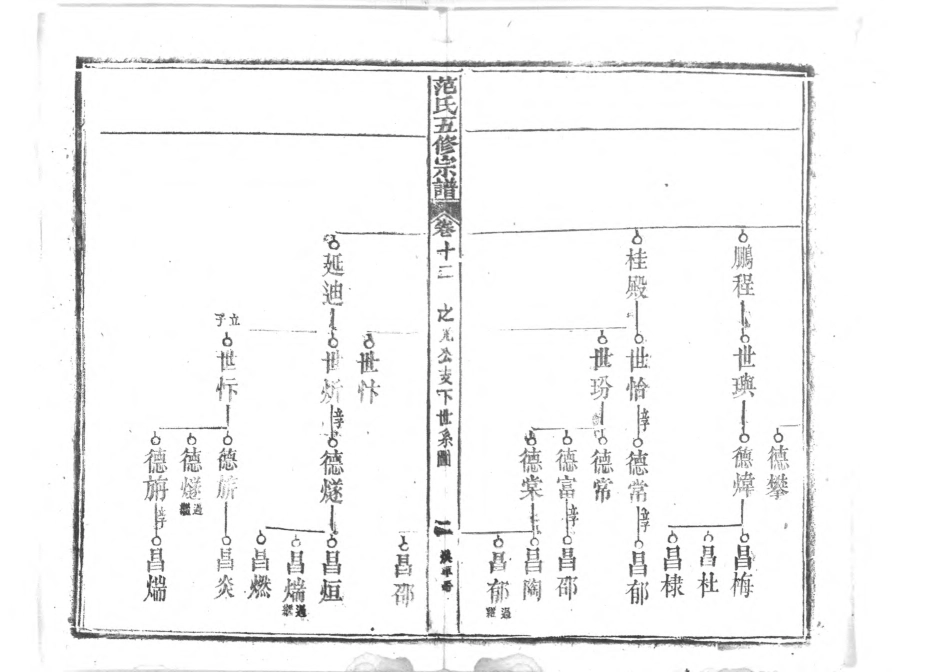 鵬程
世璵
德攀
德煒
昌梅
昌杜
昌棣
桂殿
世恰
立子
德常
立子
昌郁
世玢
德常
德富
立子
昌邵
德棠
昌陶
昌郁
過繼
范氏五修宗譜
卷十二
之元公支下世系圖
二
昌邵
世忭
延迪
世炘
立子
德燧
昌烜
昌煓
過繼
昌燃
立子
世忤
昌炎
德燧
過繼
德旃
立子
昌煓